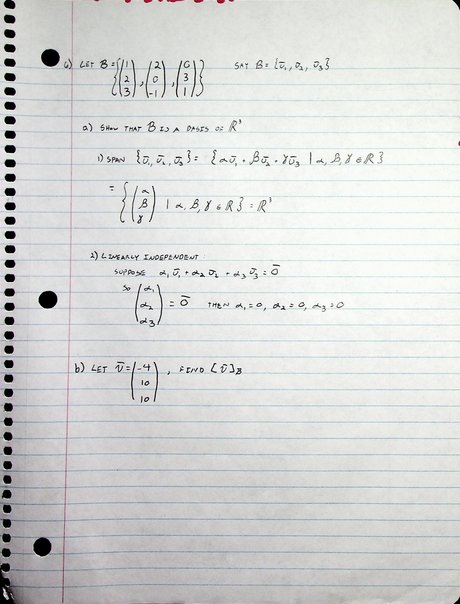 6) LET B = {(1 2 3), (2 0 -1), (0 3 1)} SAY B = {v̄₁, v̄₂, v̄₃}
a) SHOW THAT B IS A BASIS OF ℝ³
1) SPAN {v̄₁, v̄₂, v̄₃} = {αv̄₁ + βv̄₂ + γv̄₃ | α, β, γ ∈ ℝ}
= {(α β γ) | α, β, γ ∈ ℝ} = ℝ³
2) LINEARLY INDEPENDENT
SUPPOSE α₁v̄₁ + α₂v̄₂ + α₃v̄₃ = 0̄
SO (α₁ α₂ α₃) = 0̄ THEN α₁ = 0, α₂ = 0, α₃ = 0
b) LET v̄ = (-4 10 10), FIND [v̄]B